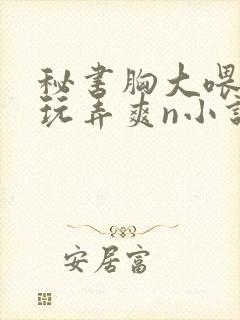 秘书胸大喂
玩弄爽n小
安居富